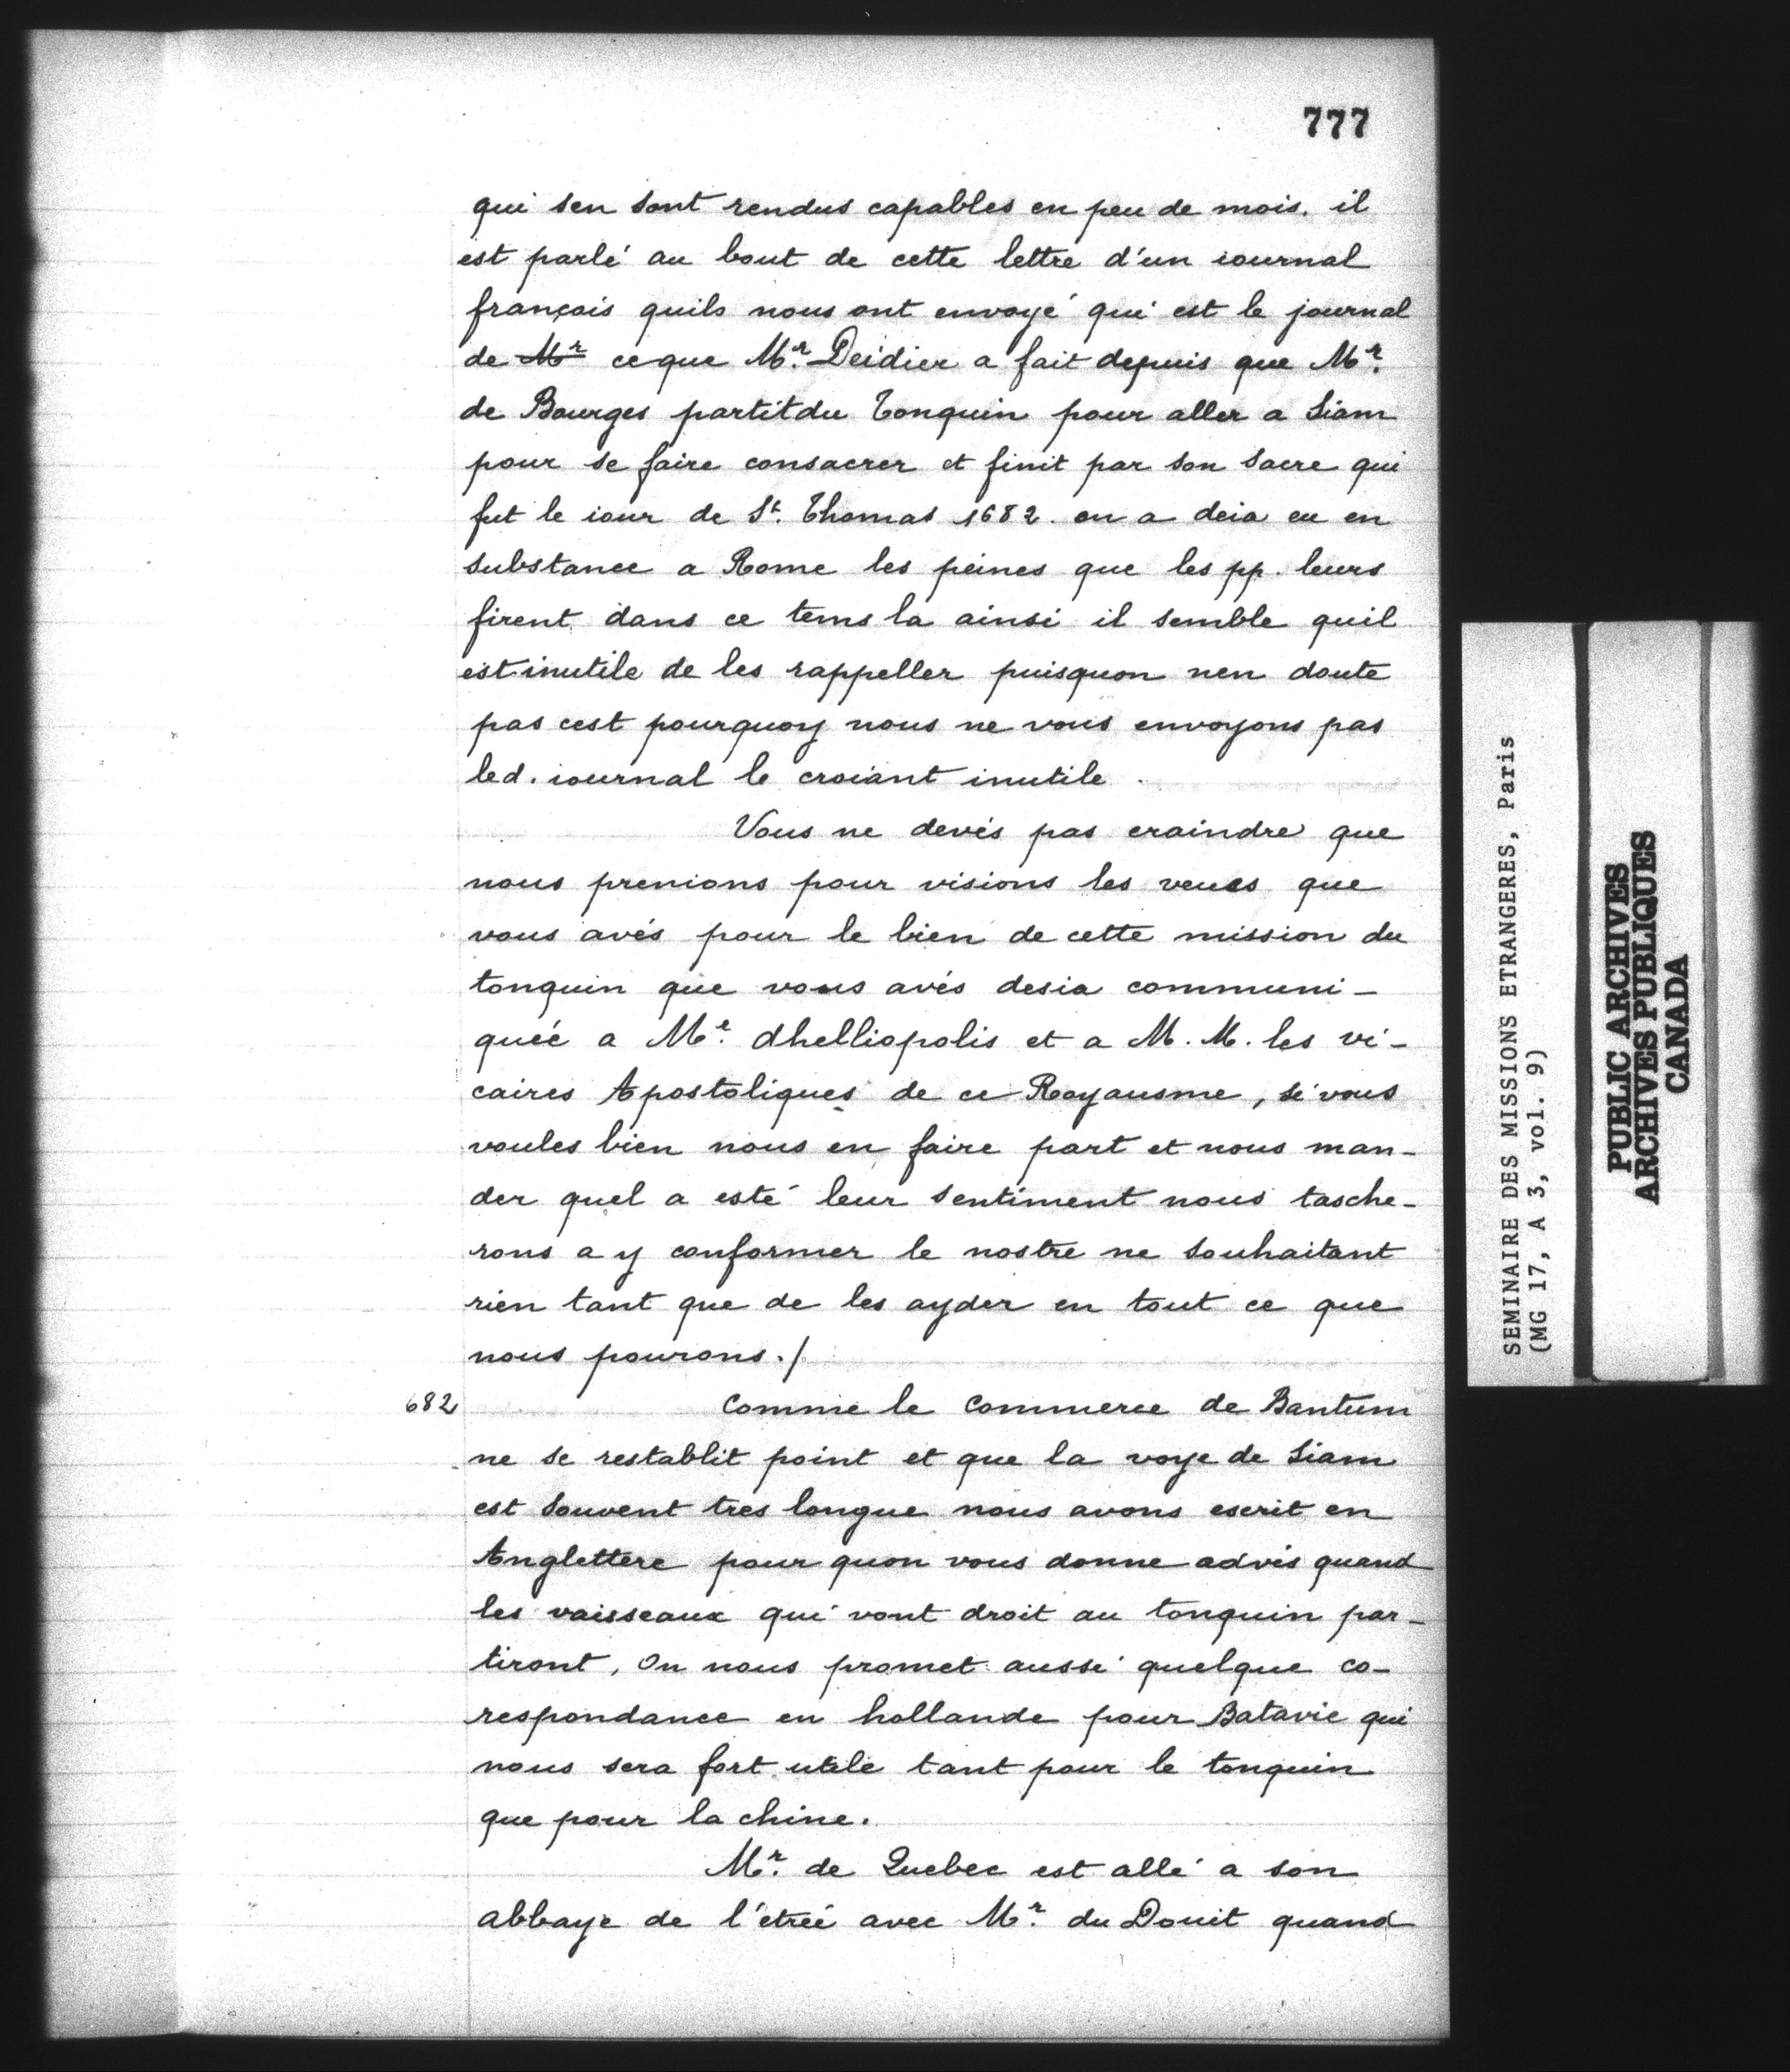 777
qui sen sont rendus capables en peu de mois. il
est parlé au bout de cette lettre d'un iournal
françois quils nous ont envoyé qui est le journal
de Mr ce que Mr. Deidier a fait depuis que Mr.
de Bourges partit du Tonquin pour aller a Siam
pour se faire consacrer et finit par son sacre qui
fut le iour de St. Thomas 1682. on a deia eu en
substance a Rome les peines que les pp. leurs
firent dans ce tems la ainsi il semble quil
est inutile de les rappeller puisquon nen doute
pas cest pourquoy nous ne vous envoyons pas
led. iournal le croiant inutile.
Vous ne devés pas craindre que
nous prenions pour visions les veues que
vous avés pour le bien de cette mission du
tonquin que vous avés desia communi-
quéé a Mr. dhelliopolis et a M. M. les vi-
caires Apostoliques de ce Royausme, si vous
voules bien nous en faire part et nous man-
der quel a esté leur sentiment nous tasche-
rons a y conformer le nostre ne souhaitant
rien tant que de les ayder en tout ce que
nous pourons./
682 Comme le Commerce de Bantum
ne se restablit point et que la voye de Siam
est souvent tres longue nous avons escrit en
Anglettere pour quon vous donne advis quand
les vaisseaux qui vont droit au tonquin par-
tiront, On nous promet aussi quelque co-
respondance en hollande pour Batavie qui
nous sera fort utile tant pour le tonquin
que pour la chine.
Mr. de Quebec est allé a son
abbaye de l'étréé avec Mr. du Douit quand
SEMINAIRE DES MISSIONS ETRANGERES, Paris
(MG 17, A 3, vol. 9)
PUBLIC ARCHIVES
ARCHIVES PUBLIQUES
CANADA